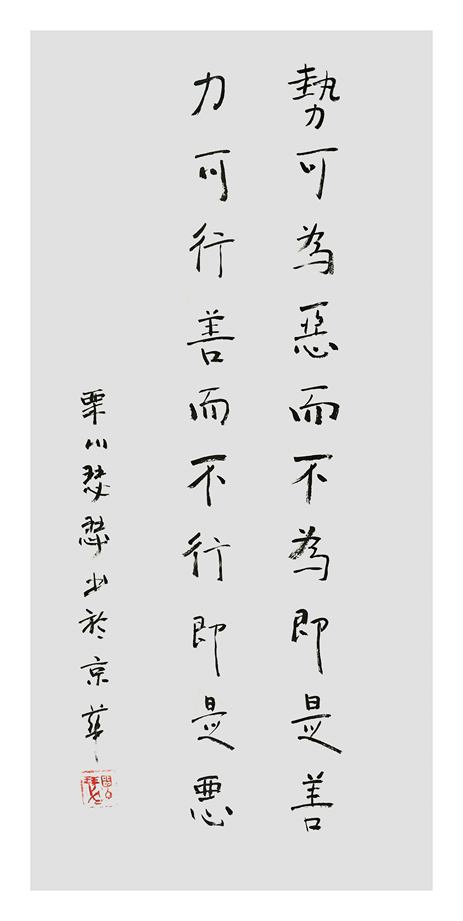 勢可為惡而不為即是善
力可行善而不行即是惡
栗川瑟瑟书於京華